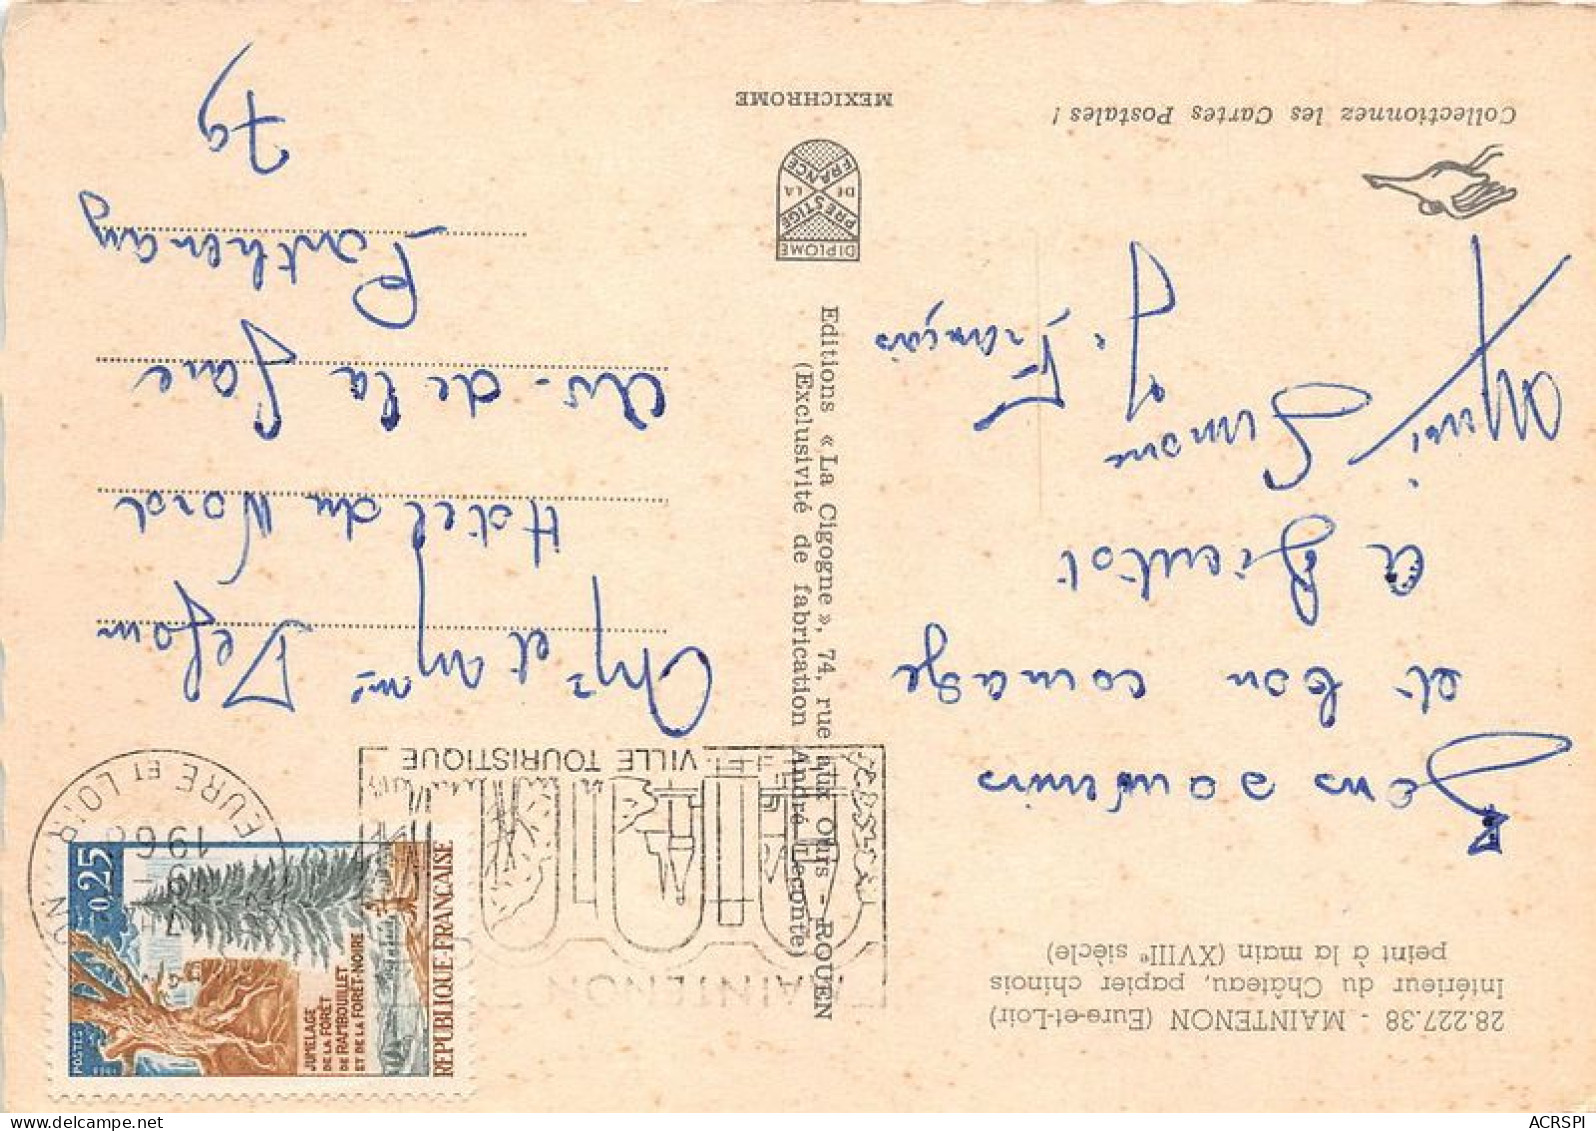 28.227.38 - MAINTENON (Eure-et-Loir)
Intérieur du Château, papier chinois
peint à la main (XVIIIe siècle)
Bons souvenirs
et bon courage
a Bientot
Mimi
Simone
Fr. François
Collectionnez les Cartes Postales !
Editions « La Cigogne », 74, rue aux Ours - ROUEN
(Exclusivité de fabrication André Leconte)
DIPLOME
PRESTIGE
DE LA
FRANCE
MEXICHROME
MAINTENON
VILLE TOURISTIQUE
EURE ET LOIR
17
9
196
POSTES
0,25
JUMELAGE
DE LA FORÊT
DE RAMBOUILLET
ET DE LA FORÊT-NOIRE
REPUBLIQUE-FRANÇAISE
Mr et Mme Defour
Hotel du Nord
Av. de la Gare
Parthenay
79
ACRSPI